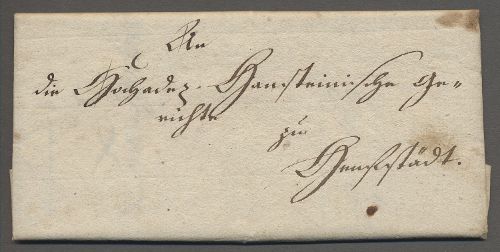 An
die Hochadez. Hansteinische Ge-
richte
zu
Henfstädt.